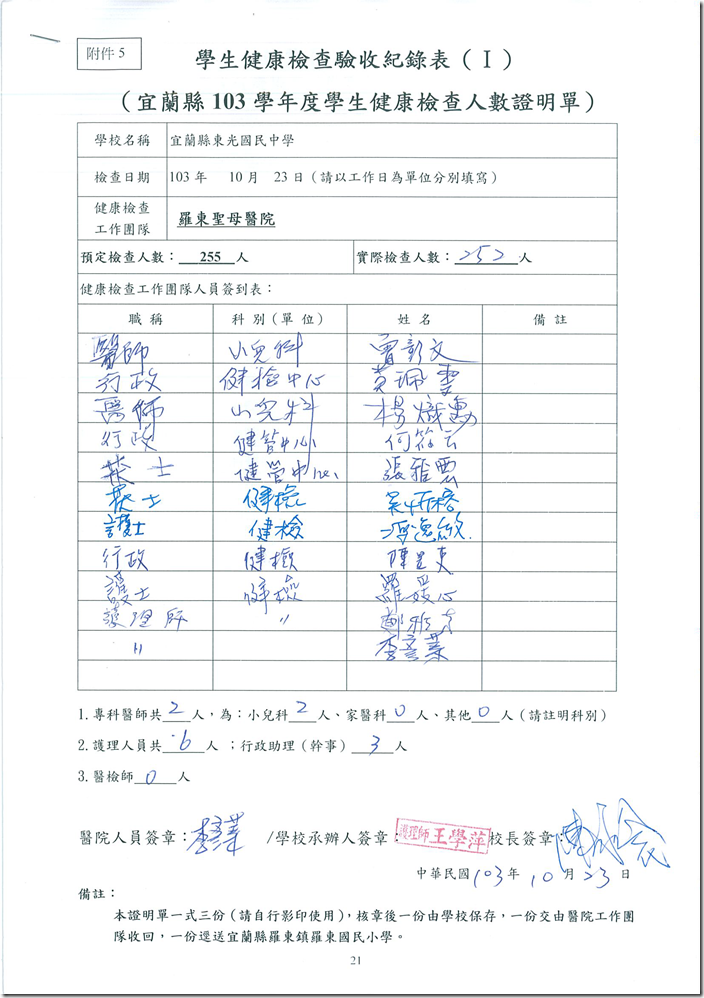 附件 5
學生健康檢查驗收紀錄表（Ⅰ）
（宜蘭縣 103 學年度學生健康檢查人數證明單）
學校名稱 宜蘭縣東光國民中學
檢查日期 103 年 10 月 23 日（請以工作日為單位分別填寫）
健康檢查
工作團隊 羅東聖母醫院
預定檢查人數： 255 人 實際檢查人數：252人
健康檢查工作團隊人員簽到表：
職 稱 科 別（單 位） 姓 名 備 註
醫師 小兒科 曾彭文
行政 健檢中心 黃珮雲
醫師 小兒科 楊熾勳
行政 健管中心
士 健管中心 張雅雲
士 健檢
護士 健檢
行政 健檢
護士 健檢 羅
護理師 〃
〃 李
1.專科醫師共2人，為：小兒科2人、家醫科0人、其他0人（請註明科別）
2.護理人員共6人 ；行政助理（幹事）3人
3.醫檢師0人
醫院人員簽章：李 /學校承辦人簽章：護理師 王學萍 校長簽章：
中華民國103年 10 月 23 日
備註：
本證明單一式三份（請自行影印使用），核章後一份由學校保存，一份交由醫院工作團
隊收回，一份逕送宜蘭縣羅東鎮羅東國民小學。
21